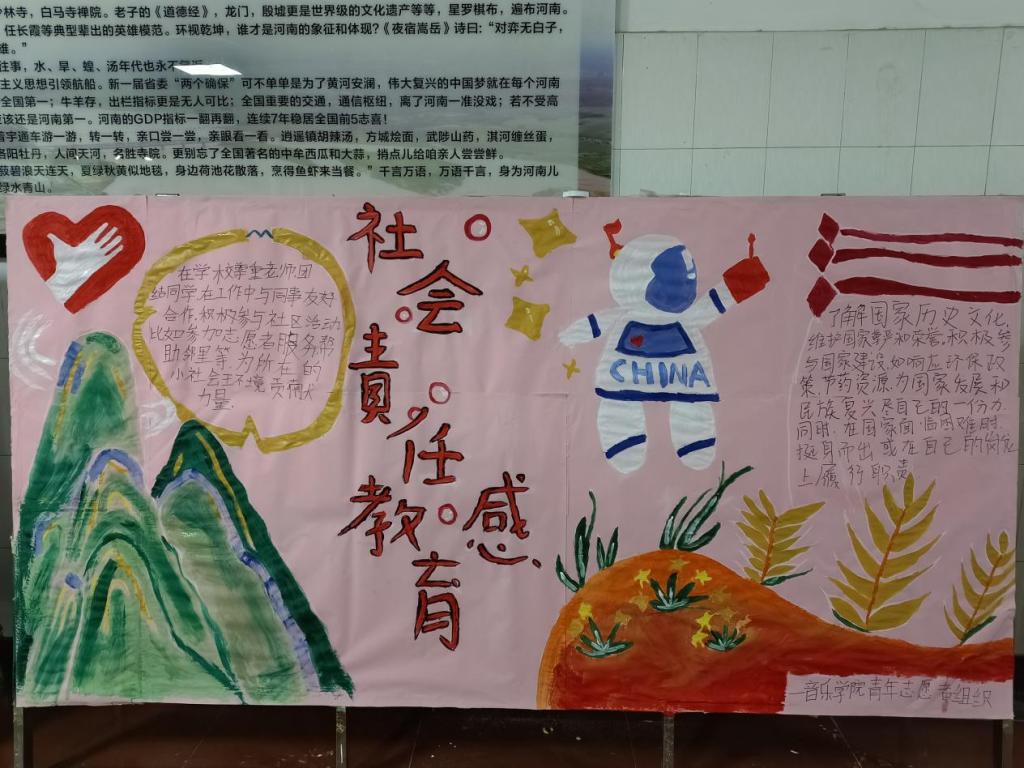 少林寺，白马寺禅院。老子的《道德经》，龙门，殷墟更是世界级的文化遗产等等，星罗棋布，遍布河南。
任长霞等典型辈出的英雄模范。环视乾坤，谁才是河南的象征和体现？《夜宿嵩岳》诗曰：“对弈无白子，
雄。”
往事，水、旱、蝗、汤年代也永不
主义思想引领航船。新一届省委“两个确保”可不单单是为了黄河安澜，伟大复兴的中国梦就在每个河南
全国第一；牛羊存，出栏指标更是无人可比；全国重要的交通，通信枢纽，离了河南一准没戏；若不受高
应该还是河南第一。河南的GDP指标一翻再翻，连续7年稳居全国前5志喜！
宇通车游一游，转一转，亲口尝一尝，亲眼看一看。逍遥镇胡辣汤，方城烩面，武陟山药，淇河缠丝蛋，
洛阳牡丹，人间天河，名胜寺院。更别忘了全国著名的中牟西瓜和大蒜，捎点儿给咱亲人尝尝鲜。
碧浪天连天，夏绿秋黄似地毯，身边荷池花散落，烹得鱼虾来当餐。”千言万语，万语千言，身为河南儿
绿水青山。
社会责任教育感
在学校尊重老师团
结同学,在工作中与同事友好
合作,积极参与社区活动
比如参加志愿者服务帮
助邻里等为所在的
小社会环境贡献
力量.
CHINA
了解国家历史文化,
维护国家尊严和荣誉,积极参
与国家建设,如响应环保政
策,节约资源,为国家发展和
民族复兴尽自己的一份力.
同时,在国家面临困难时,
挺身而出或在自己的岗位
上履行职责
音乐学院青年志愿者组织